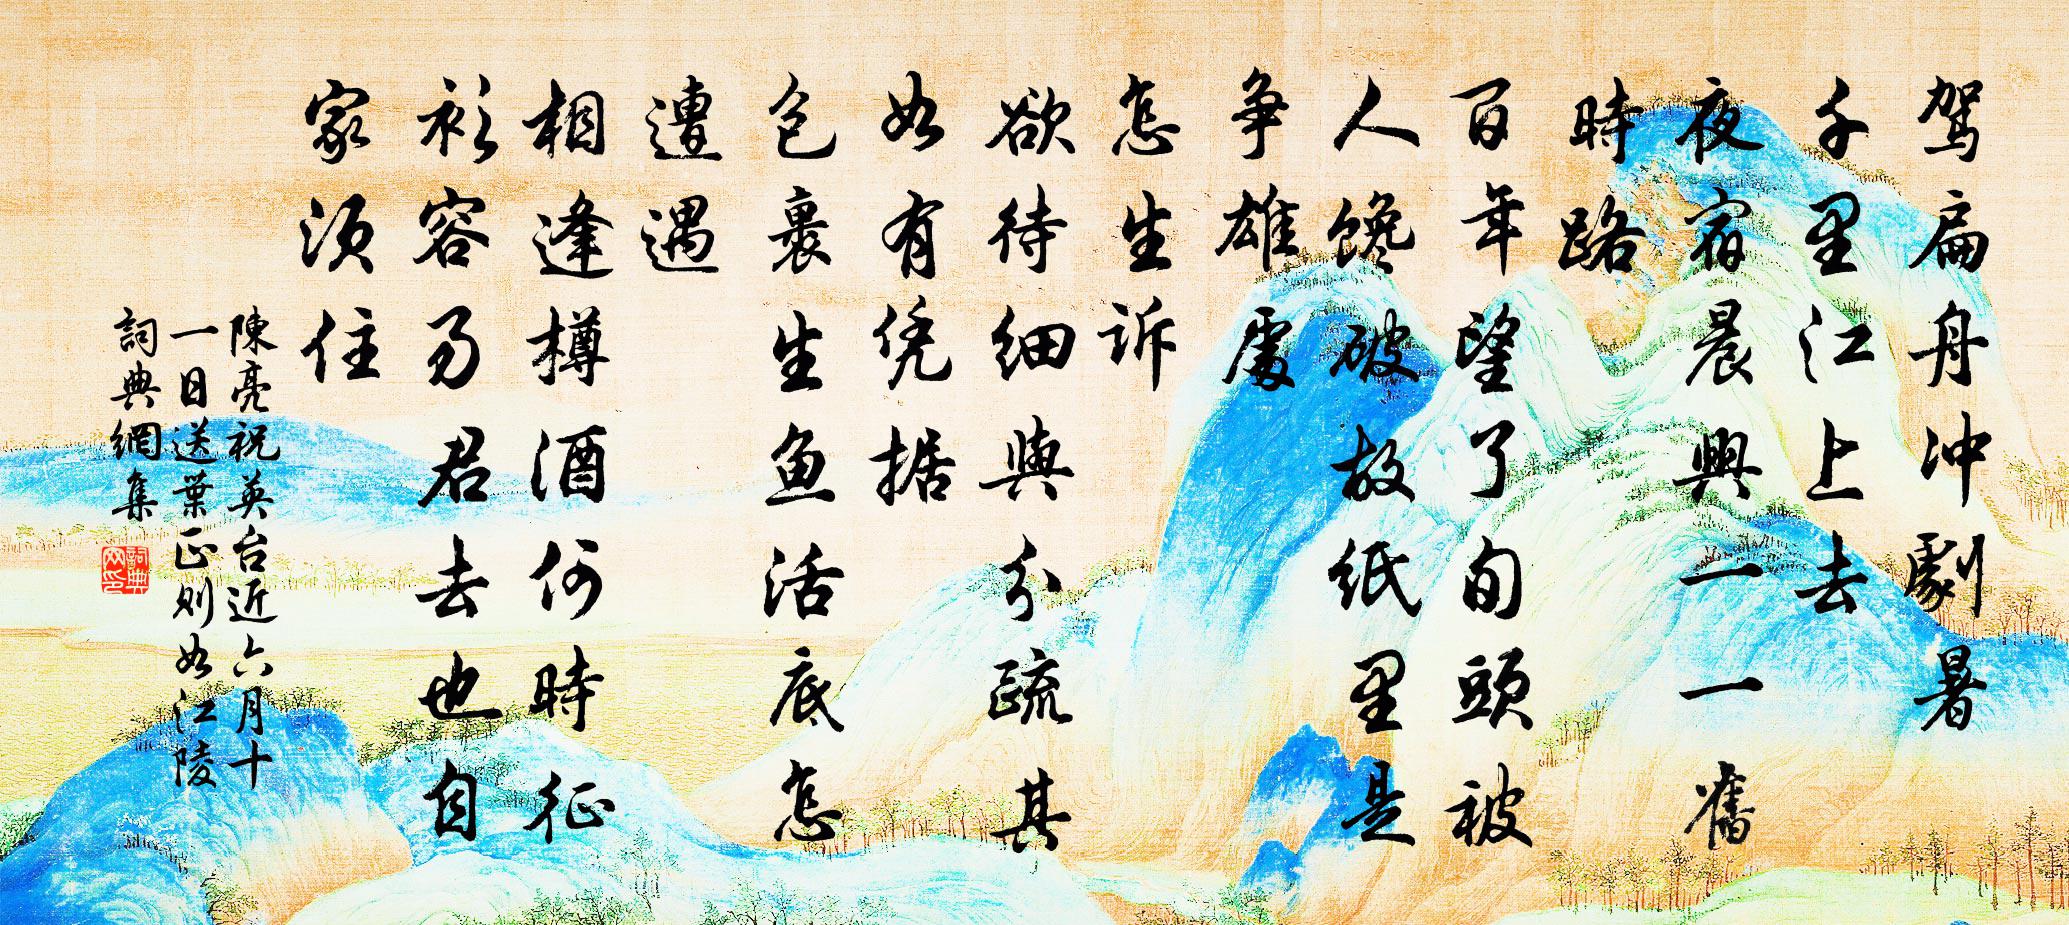 驾扁舟冲劇暑
千里江上去
夜宿晨興一一舊
時路
百年望了旬頭被
人馋破故纸里是
争雄處
怎生诉
欲待细與分疏其
如有凭据
包裹生鱼活底怎
遭遇
相逢樽酒何時征
衫容易君去也自
家须住
陳亮祝英台近六月十
一日送葉正则如江陵
詞典網集
詞典網印